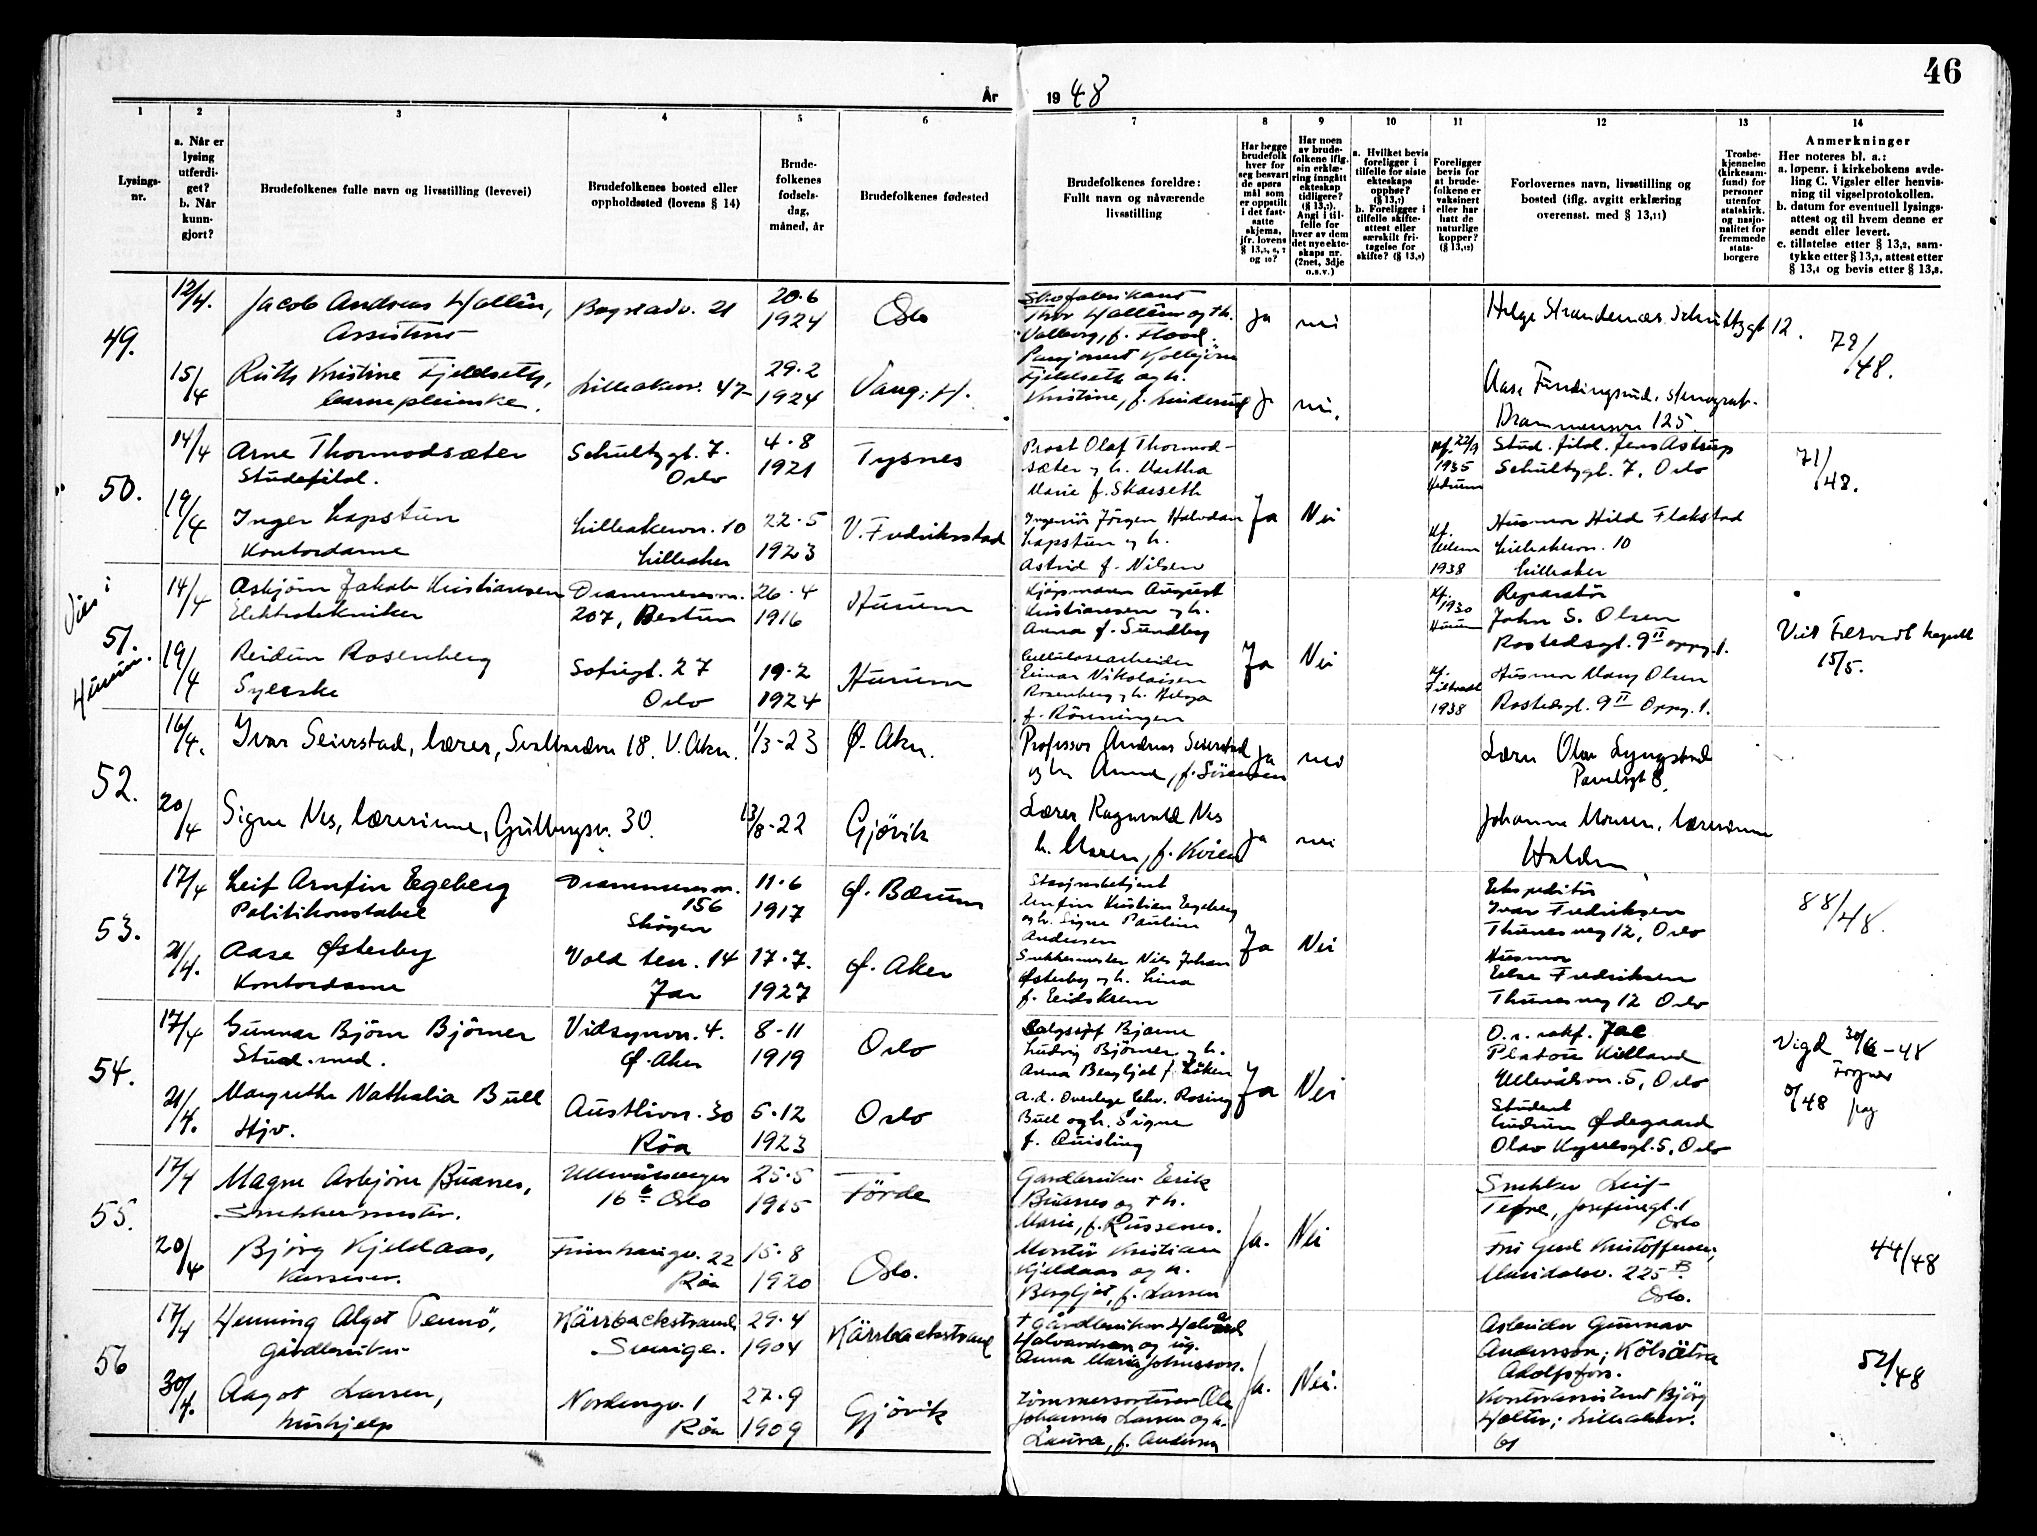 46
År 1948
1
2
3
4
5
6
7
8
9
10
11
12
13
14
Lysings-
nr.
a. Når er
lysing
utferdi-
get?
b. Når
kunn-
gjort?
Brudefolkenes fulle navn og livsstilling (levevei)
Brudefolkenes bosted eller
oppholdssted (lovens § 14)
Brude-
folkenes
fødsels-
dag,
måned, år
Brudefolkenes fødested
Brudefolkenes foreldre:
Fullt navn og nåværende
livsstilling
Har begge
brudefolk
hver for
seg besvart
de spørs
mål som
er oppstilt
i det fast-
satte
skjema,
jfr. lovens
og 10?
Har noen
av brude-
folkene iflg.
sin erklæ-
ring inngått
ekteskap
tidligere?
Angi i til-
felle for
hver av dem
det nye ekte-
skaps nr.
(2net, 3dje
o.s.v.)
a. Hvilket bevis
foreligger i
tilfelle for siste
ekteskaps
opphør?
b. Foreligger i
tilfelle skifte-
attest eller
særskilt fri-
tagelse for
skifte?
Foreligger
bevis for
at brude-
folkene er
vaksinert
eller har
hatt de
naturlige
kopper?
Forlovernes navn, livsstilling og
bosted (iflg. avgitt erklæring
overensst. med § 13,11)
Trosbe-
kjennelse
(kirkesam-
fund) for
personer
utenfor
statskirk.
og nasjo-
nalitet for
fremmede
stats-
borgere
Anmerkninger
Her noteres bl. a.:
a. løpenr. i kirkebokens avde-
ling C. Vigsler eller henvis-
ning til vigselprotokollen.
b. datum for eventuell lysings-
attest og til hvem denne er
sendt eller levert.
c. tillatelse etter § 13,2, sam-
tykke etter § 13,3, attest etter
§ 13,4 og bevis etter § 13,8.
49.
12/4.
Jacob Andreas Hallén,
Assistent
Bogstadv. 21
20.6
1924
Oslo
Skofabrikant
Thor Hallén og th.
Valborg, f. Flood.
Ja
nei
Helge Strandenæs Schultzgt 12.
79/48.
15/4
Ruth Kristine Fjeldseth,
barnepleierske.
Lilleakerv. 47
29.2
1924
Vang. H.
Pensjonert Kolbjörn
Fjeldseth og h.
Kristine, f. Linderud
J
nei.
Aase Fundingsrud, stenograf.
Drammensvn 125.
50.
14/4
Arne Thormodsæter
Stud.filol.
Schultzgt. 7.
Oslo
4.8
1921
Tysnes
Prost Olaf Thormod-
sæter g h. Martha
Marie f. Skasseth
Kf. 22/9
1935
Hedrum
Stud. filol. Jens Astrup
Schultzgt. 7, Oslo
71/48.
19/4
Inger Lapstun
Kontordame
Lilleakervn. 10
Lilleaker
22.5
1923
V. Fredrikstad
Ingeniør Jörgen Halvdan
Lapstun g h.
Astrid f. Nilsen
Ja
Nei
Kf.
1938
Husmor Hild Flakstad
Lilleakervn. 10
Lilleaker
Vies i
Hurum.
51.
14/4
Asbjörn Jakob Kristiansen
Elektrotekniker
Drammensvn.
207, Bestum
26.4
1916
Hurum
Kjöpmann August
Kristiansen g h.
Anna f. Sundberg
Kf.
1930
Hurum
Reparatör
John S. Olsen
Rostedsgt. 9 II oppg. 1.
Viet Filtvedt kapell
15/5.
19/4
Reidun Rosenberg
Syerske
Sofiegt. 27
Oslo
19.2
1924
Hurum
Cellulosearbeider
Einar Nikolaisen
Rosenberg g h. Helga
f. Rönningen
Ja
Nei
Kf.
Filtvedt
1938
Husmor Mary Olsen
Rostedsgt. 9 II Oppg. 1.
52.
16/4.
Ivar Seierstad, lærer, Svalbardvn 18. V. Aker.
1/3-23
Ø. Aker.
Professor Andreas Seierstad
og h. Anna, f. Sörensen
Ja
nei
Lærer Olav Lyngstad
Pavelsgt 8.
20/4
Signe Nes, lærerinne, Gullbergsv. 30.
13/8-22
Gjövik
Lærer Ragnvald Nes
h. Maren, f. Kvien
Ja
nei
Johanne Monsen, lærerinne
Halden
53.
17/4
Leif Arnfin Egeberg
Politikonstabel
Drammensvn.
156
Sköyen
11.6
1917
Ø. Bærum
Stasjonsbetjent
Arnfin Kristian Egeberg
og h. Signe Pauline
Andersen
Ekspeditör
Ivar Fredriksen
Thunesveg 12, Oslo
88/48.
21/4.
Aase Østerby
Kontordame
Vold terr. 14
Jar
17.7.
1927
Ø. Aker
Snekkermester Nils Johan
Østerby g h. Lina
f. Eidsksen
Ja
Nei
Husmor
Else Fredriksen
Thunesveg 12 Oslo
54.
17/4
Gunnar Björn Björner
Stud.med.
Vidsynvn. 4.
Ø. Aker
8-11
1919
Oslo
Salgssjef Bjarne
Ludvig Björner g h.
Anna Bergljot f. Löken
O.r.sakf. Jac
Platou Kielland
Ullevålsvn. 5, Oslo
Vigd 30/6-48
Frogner
21/4.
Margrethe Nathalia Bull
Hjv.
Austlivn. 30
Röa
5.12
1923
Oslo
a.d. Overlege Edv. Rosing
Bull og h. Signe
f. Quisling
Ja
Nei
Student
Gudrun Ødegaard
Olav Kyrresgt. 5, Oslo
0/48 pag
55.
17/4
Magne Asbjörn Buanes,
Snekkermester.
Ullevålsvegen
16 b Oslo
25.5
1915
Förde
Gardbruker Erik
Buanes og th.
Marie, f. Russenes.
Snekker Leif
Tefre, Josefinegt. 1
Oslo
20/4
Björg Kjeldaas,
kasserer.
Frimhaugv. 22
Röa
15.8
1920
Oslo.
Montör Kristian
Kjeldaas og h.
Bergljot, f. Larsen
Ja.
Nei
Frk Gerd Kristoffersen,
Maridalsv. 225 B.
Oslo.
44/48
56
17/4
Henning Algot Tennö,
gårdbruker
Kärrbackstrand,
Sverige.
29.4
1904
Kärrbackstrand
† gårdbruker Halvard
Halvardsson og ug.
Anna Maria Johnsson.
Arbeider Gunnar
Andersson, Kölsätra
Adolfsfors.
52/48
30/4.
Aagot Larsen,
hushjelp
Nordengv. 1
Röa
27.9
1909
Gjövik
Tömmersorterer Ole
Johannes Larsen og h.
Laura, f. Andersen
Ja.
Nei.
Kontorassistent Björg
Holter, Lilleakerv.
61